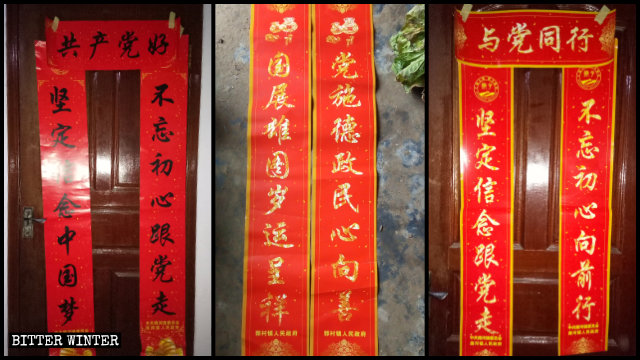 共产党好
坚定信念中国梦
不忘初心跟党走
国展雄图岁运呈祥
党施德政民心向善
郭村镇人民政府
郭村镇人民政府
与党同行
坚定信念跟党走
不忘初心向前行
BITTER WINTER